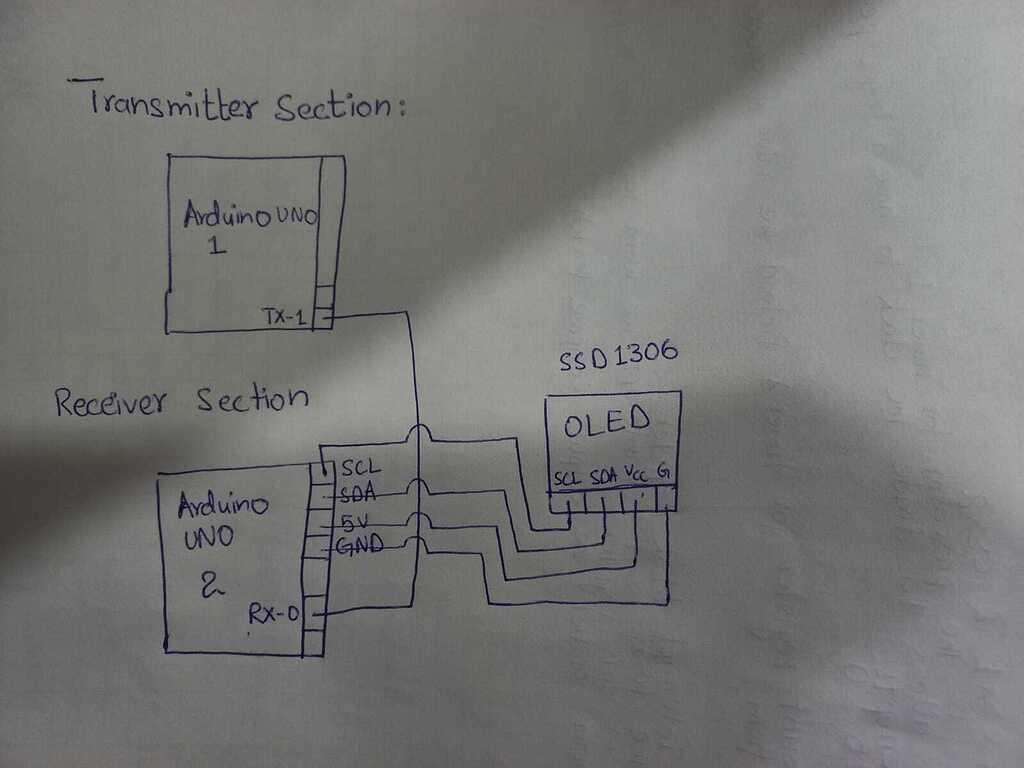 Transmitter Section:
Arduino UNO
1
TX-1
SSD1306
Receiver Section
OLED
SCL SDA VCC G
SCL
SDA
5V
GND
Arduino
UNO
2
RX-0